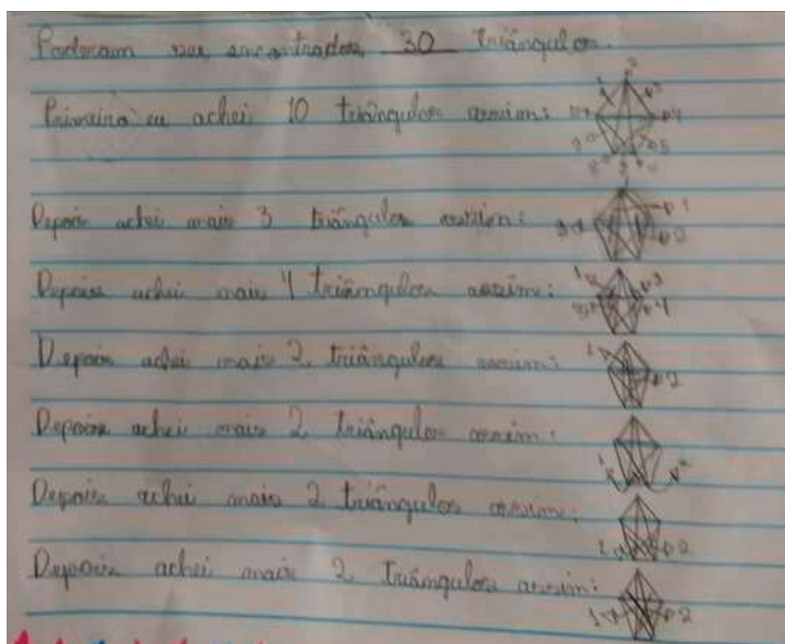 Poderam ser encontrados 30 triângulos.
Primeiro eu achei 10 triângulos assim:
Depois achei mais 3 triângulos assim:
Depois achei mais 4 triângulos assim:
Depois achei mais 2 triângulos assim:
Depois achei mais 2 triângulos assim:
Depois achei mais 2 triângulos assim:
Depois achei mais 2 triângulos assim: